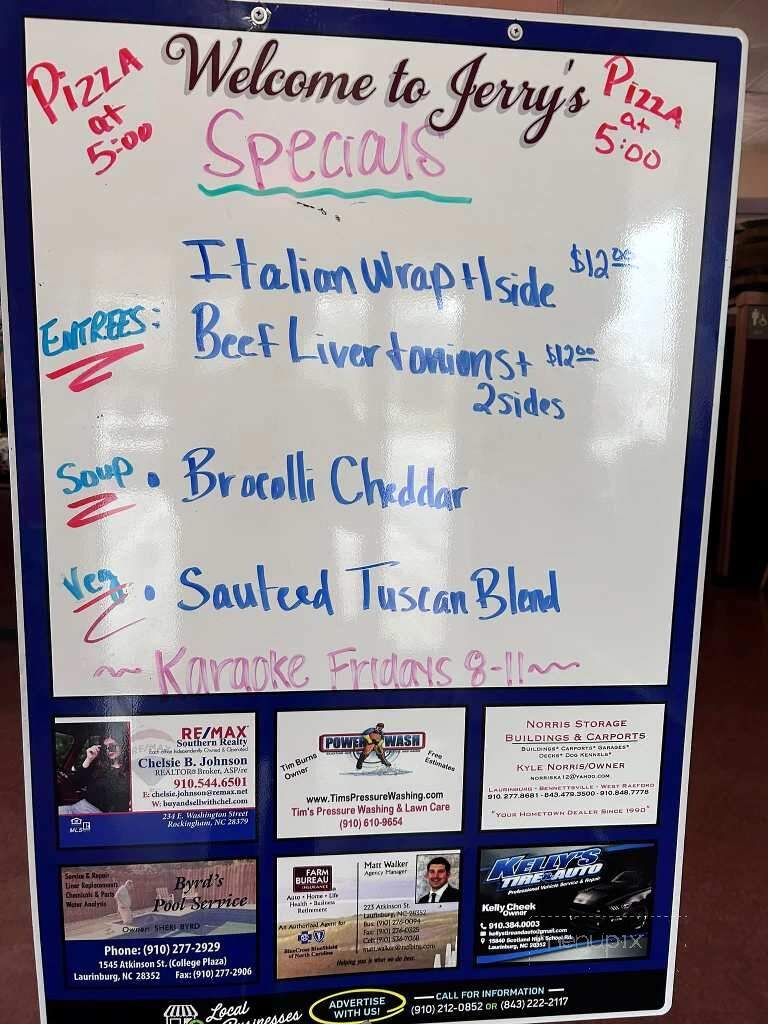 Welcome to Jerry's
PIZZA at 5:00
PIZZA at 5:00
Specials
Italian Wrap + 1 side $12.00
ENTREES:
Beef Liver + onions + $12.00
2 sides
Soup • Brocolli Cheddar
Veg • Sauteed Tuscan Blend
~ Karaoke Fridays 8-11 ~
RE/MAX
Southern Realty
Each office Independently Owned & Operated
Chelsie B. Johnson
REALTOR® Broker, ASP/re
910.544.6501
E: chelsie.johnson@remax.net
W: buyandsellwithchel.com
234 E. Washington Street
Rockingham, NC 28379
MLS
POWER WASH
Tim Burns
Owner
Free
Estimates
www.TimsPressureWashing.com
Tim's Pressure Washing & Lawn Care
(910) 610-9654
NORRIS STORAGE
BUILDINGS & CARPORTS
BUILDINGS* CARPORTS* GARAGES*
DECKS* DOG KENNELS*
KYLE NORRIS/OWNER
NORRISKA12@YAHOO.COM
LAURINBURG - BENNETTSVILLE - WEST RAEFORD
910.277.8681 - 843.479.3500 - 910.848.7778
"YOUR HOMETOWN DEALER SINCE 1990"
Service & Repair
Liner Replacements
Chemicals & Parts
Water Analysis
Byrd's
Pool Service
Owner: SHERI BYRD
Phone: (910) 277-2929
1545 Atkinson St. (College Plaza)
Laurinburg, NC 28352 Fax: (910) 277-2906
FARM
BUREAU
INSURANCE
Auto • Home • Life
Health • Business
Retirement
An Authorized Agent for
BlueCross BlueShield
of North Carolina
Matt Walker
Agency Manager
223 Atkinson St.
Laurinburg, NC 28352
Helping you is what we do best.
KELLY'S
TIRE & AUTO
Professional Vehicle Service & Repair
Kelly Cheek
Owner
910.384.0003
kellystireandauto@gmail.com
15840 Scotland High School Rd.
Laurinburg, NC 28352
menupix
Local
Businesses
ADVERTISE
WITH US!
CALL FOR INFORMATION
(910) 212-0852 OR (843) 222-2117